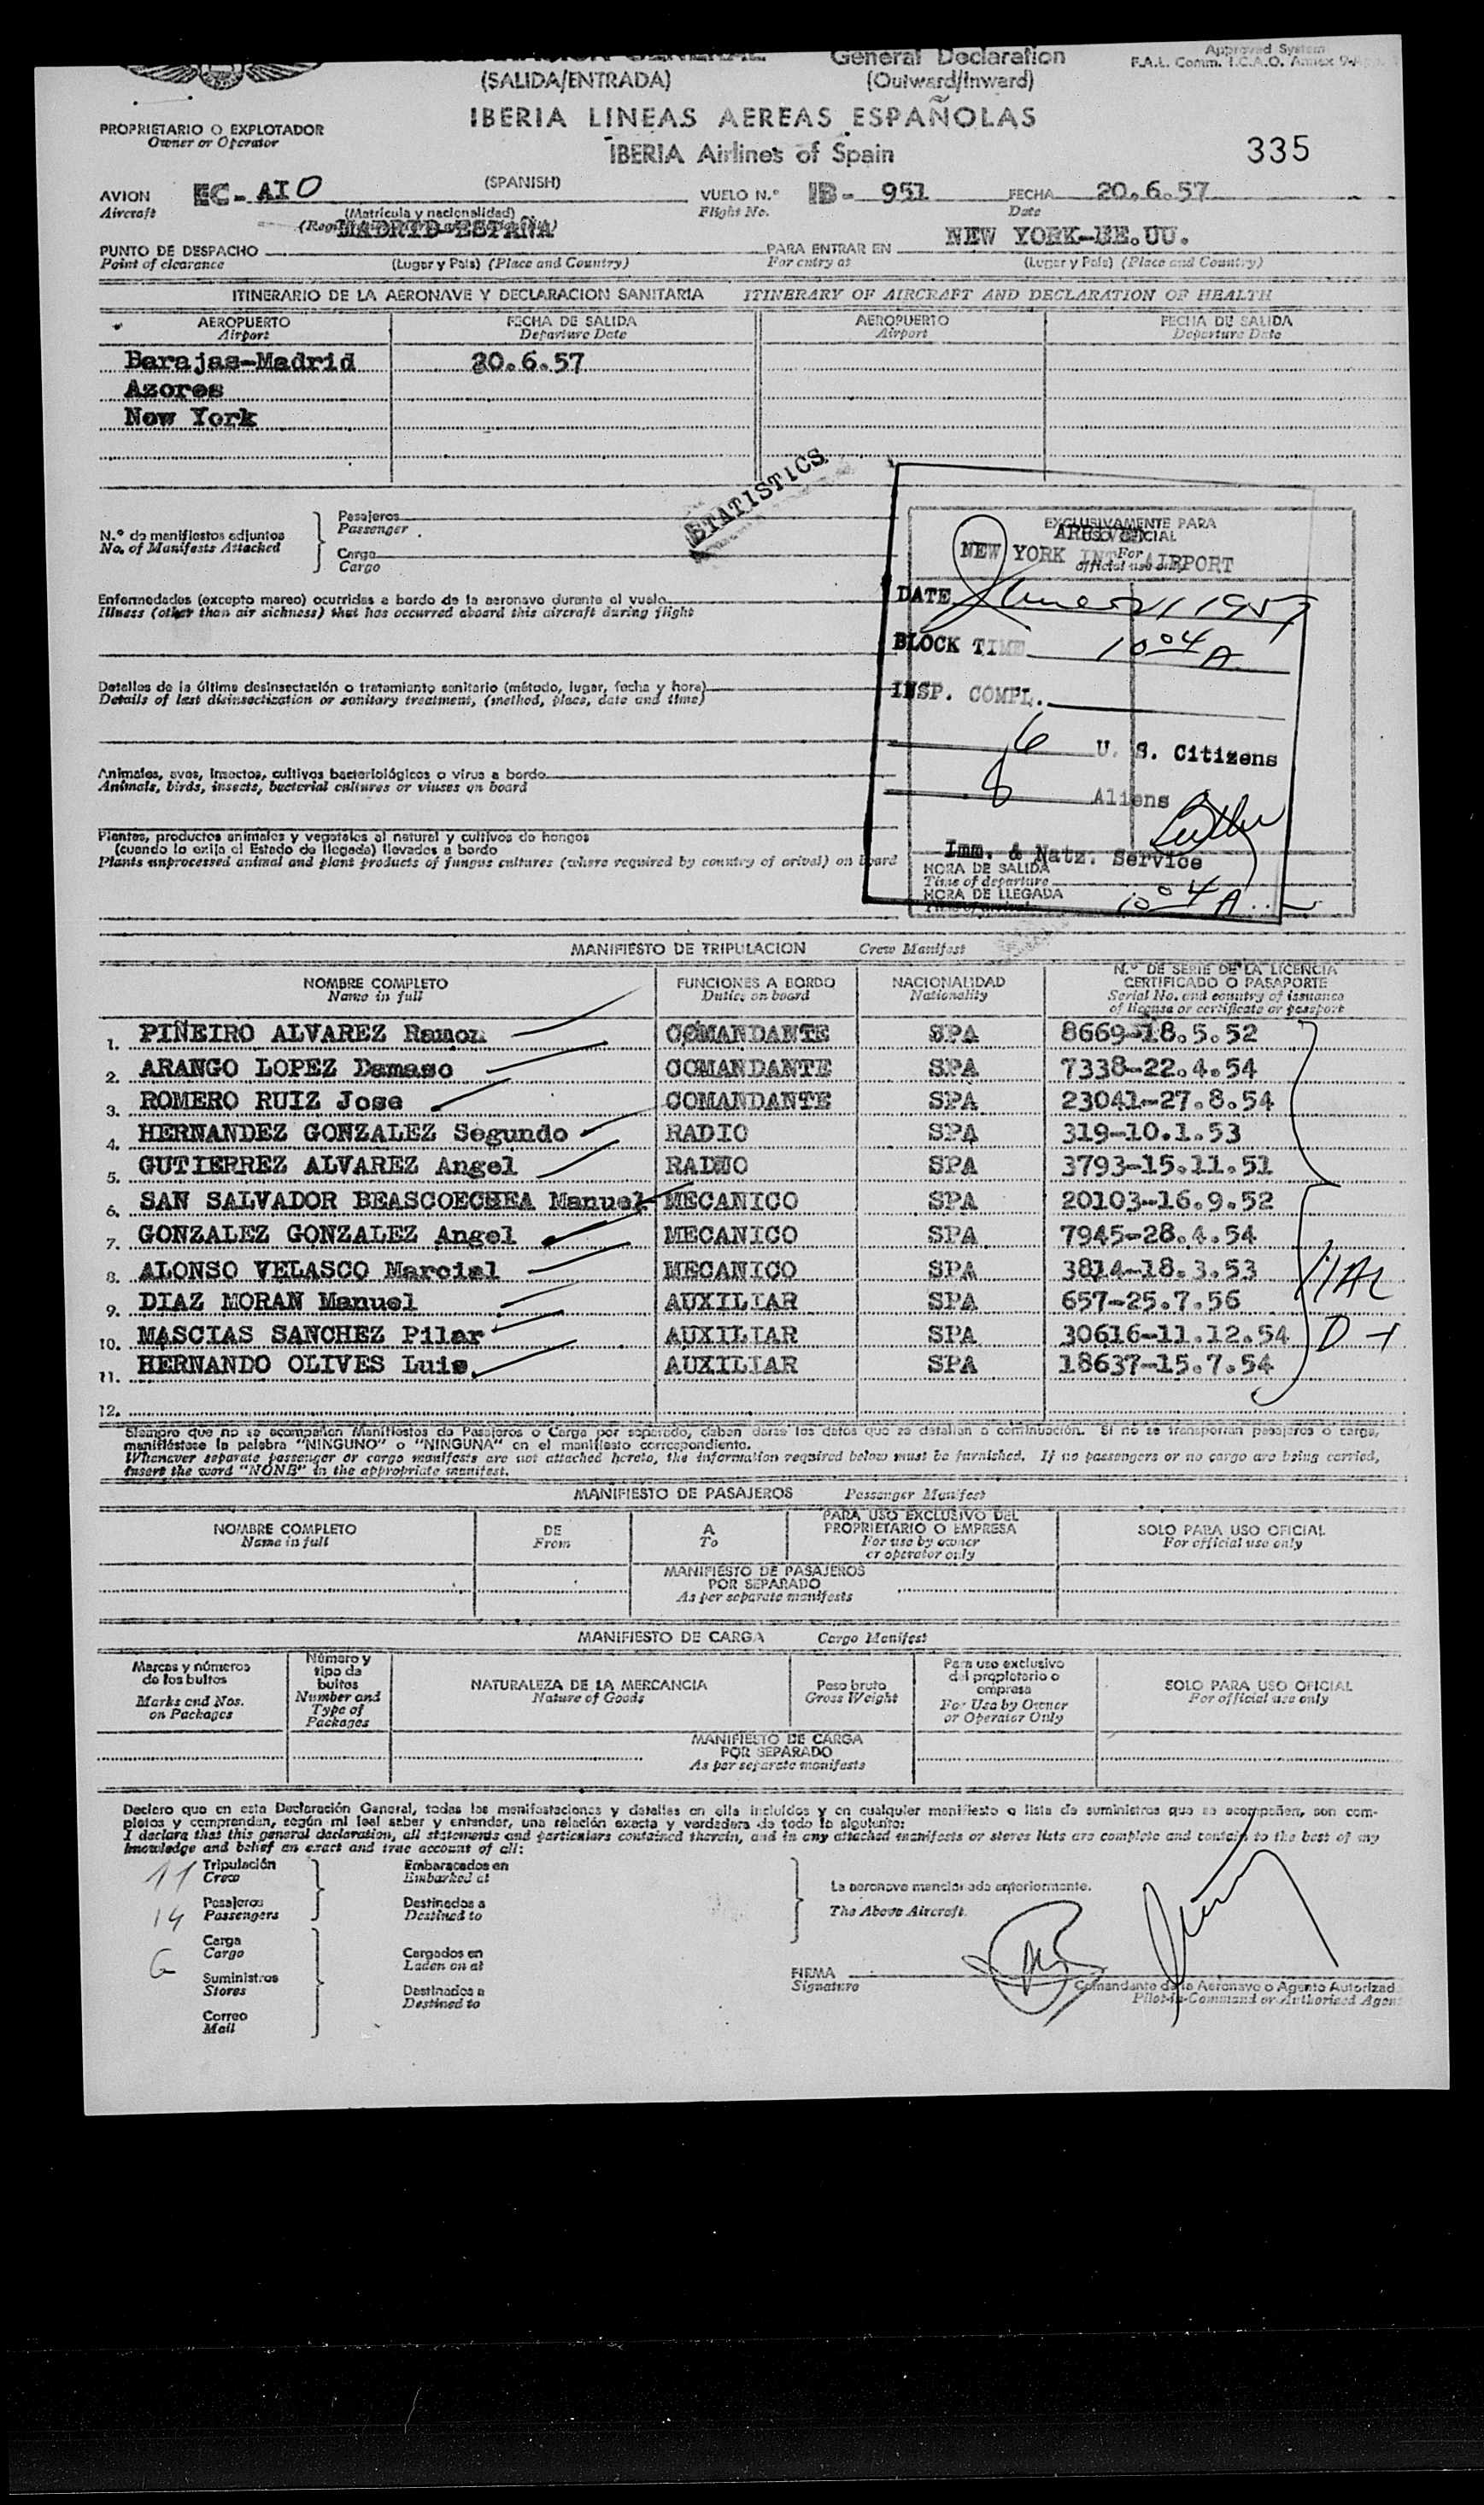 General Declaration
Approved System
F.A.L. Comm. I.C.A.O. Annex 9-
(SALIDA/ENTRADA)
(Outward/Inward)
IBERIA LINEAS AEREAS ESPAÑOLAS
IBERIA Airlines of Spain
335
PROPRIETARIO O EXPLOTADOR
Owner or Operator
(SPANISH)
AVION EC-AIO VUELO N.° IB- 951 FECHA 20.6.57
Aircraft (Matrícula y nacionalidad) Flight No. Date
MADRID-ESPAÑA NEW YORK-EE.UU.
PUNTO DE DESPACHO PARA ENTRAR EN
Point of clearance (Lugar y País) (Place and Country) For entry at (Lugar y País) (Place and Country)
ITINERARIO DE LA AERONAVE Y DECLARACION SANITARIA ITINERARY OF AIRCRAFT AND DECLARATION OF HEALTH
AEROPUERTO FECHA DE SALIDA AEROPUERTO FECHA DE SALIDA
Airport Departure Date Airport Departure Date
Barajas-Madrid 20.6.57
Azores
New York
STATISTICS
N.° de manifiestos adjuntos
No. of Manifests Attached
Pasajeros
Passenger
Carga
Cargo
Enfermedades (excepto mareo) ocurridas a bordo de la aeronave durante el vuelo
Illness (other than air sichness) that has occurred aboard this aircraft during flight
Detalles de la última desinsectación o tratamiento sanitario (método, lugar, fecha y hora)
Details of last disinsectization or sanitary treatment, (method, place, date and time)
Animales, aves, insectos, cultivos bacteriológicos o virus a bordo
Animals, birds, insects, bacterial cultures or viuses on board
Plantas, productos animales y vegetales al natural y cultivos de hongos
(cuando lo exija el Estado de llegada) llevados a bordo
Plants unprocessed animal and plant products of fungus cultures (where required by country of orival) on board
EXCLUSIVAMENTE PARA
USO OFICIAL
For
official use only
ARRIVED
NEW YORK INT. AIRPORT
DATE June 21 1957
BLOCK TIME 10 04 A
INSP. COMPL.
6 U. S. Citizens
8 Aliens
Imm. & Natz. Service
HORA DE SALIDA
Time of departure
HORA DE LLEGADA 10 04 A
MANIFIESTO DE TRIPULACION Crew Manifest
NOMBRE COMPLETO FUNCIONES A BORDO NACIONALIDAD N.° DE SERIE DE LA LICENCIA
CERTIFICADO O PASAPORTE
Name in full Duties on board Nationality Serial No. and country of issuance
of license or certificate or passport
1. PIÑEIRO ALVAREZ Ramon COMANDANTE SPA 8669-18.5.52
2. ARANGO LOPEZ Damaso COMANDANTE SPA 7338-22.4.54
3. ROMERO RUIZ Jose COMANDANTE SPA 23041-27.8.54
4. HERNANDEZ GONZALEZ Segundo RADIO SPA 319-10.1.53
5. GUTIERREZ ALVAREZ Angel RADIO SPA 3793-15.11.51
6. SAN SALVADOR BEASCOECHEA Manuel MECANICO SPA 20103-16.9.52
7. GONZALEZ GONZALEZ Angel MECANICO SPA 7945-28.4.54
8. ALONSO VELASCO Marcial MECANICO SPA 3814-18.3.53
9. DIAZ MORAN Manuel AUXILIAR SPA 657-25.7.56
10. MASCIAS SANCHEZ Pilar AUXILIAR SPA 30616-11.12.54
11. HERNANDO OLIVES Luis. AUXILIAR SPA 18637-15.7.54
12.
D-1
Siempre que no se acompañen Manifiestos de Pasajeros o Carga por separado, deben darse los datos que se detallan a continuación. Si no se transportan pasajeros o carga,
manifiéstese la palabra "NINGUNO" o "NINGUNA" en el manifiesto correspondiente.
Whenever separate passenger or cargo manifests are not attached hereto, the information required below must be furnished. If no passengers or no cargo are being carried,
insert the word "NONE" in the appropriate manifest.
MANIFIESTO DE PASAJEROS Passenger Manifest
NOMBRE COMPLETO DE A PARA USO EXCLUSIVO DEL
PROPRIETARIO O EMPRESA SOLO PARA USO OFICIAL
Name in full From To For use by owner
or operator only For official use only
MANIFIESTO DE PASAJEROS
POR SEPARADO
As per separate manifests
MANIFIESTO DE CARGA Cargo Manifest
Marcas y números
de los bultos
Marks and Nos.
on Packages
Número y
tipo de
bultos
Number and
Type of
Packages
NATURALEZA DE LA MERCANCIA
Nature of Goods
Peso bruto
Gross Weight
Para uso exclusivo
del propietario o
empresa
For Use by Owner
or Operator Only
SOLO PARA USO OFICIAL
For official use only
MANIFIESTO DE CARGA
POR SEPARADO
As per separate manifests
Declaro que en esta Declaración General, todas las manifestaciones y detalles en ella incluidos y en cualquier manifiesto o lista de suministros que se acompañen, son com-
pletos y comprenden, según mi leal saber y entender, una relación exacta y verdadera de todo lo siguiente:
I declare that this general declaration, all statements and particulars contained therein, and in any attached manifests or stores lists are complete and contain to the best of my
knowledge and belief an exact and true account of all:
11 Tripulación
Crew
14 Pasajeros
Passengers
Carga
Cargo
Suministros
Stores
Correo
Mail
Embarcados en
Embarked at
Destinados a
Destined to
Cargados en
Laden on at
Destinados a
Destined to
La aeronave mencionada anteriormente.
The Above Aircraft
FIRMA
Signature
Comandante de la Aeronave o Agente Autorizad
Pilot-in-Command or Authorized Agent